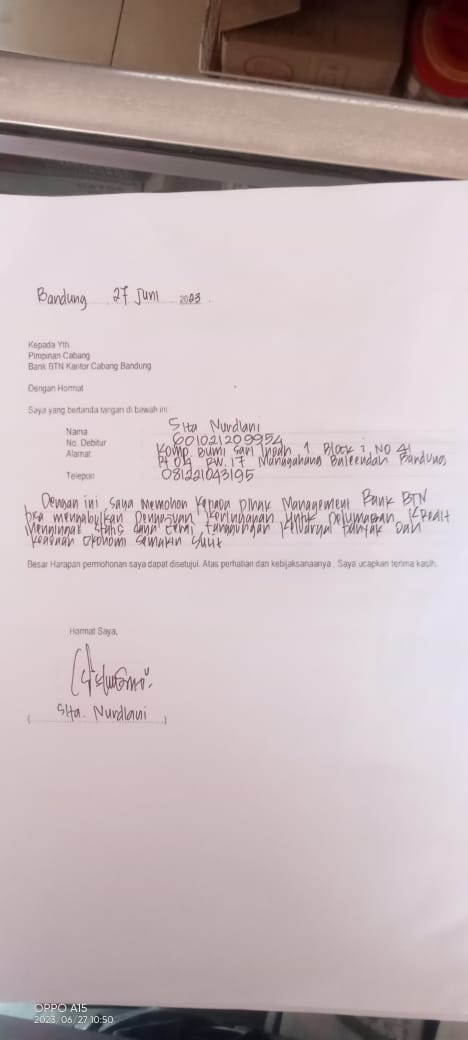 Bandung 27 Juni 2023
Kepada Yth.
Pimpinan Cabang
Bank BTN Kantor Cabang Bandung
Dengan Hormat
Saya yang bertanda tangan di bawah ini
Nama Sita Nurdiani
No. Debitur 601021209954
Alamat Komp. Bumi Sari Indah 1 Block i, NO 41
Rt 04 RW. 17 Manggahang Baleendah Bandung
Telepon 081221043195
Dengan ini Saya Memohon Kepada pihak Management Bank BTN
bisa mengabulkan Pengajuan Keringanan Untuk pelunasan Kredit
Mengingat Status Janda tanggungan Keluarga banyak Dan
Keadaan Ekonomi Semakin Sulit
Besar Harapan permohonan saya dapat disetujui. Atas perhatian dan kebijaksanaanya. Saya ucapkan terima kasih.
Hormat Saya,
Sita. Nurdiani
OPPO A15
2023/06/27 10:50